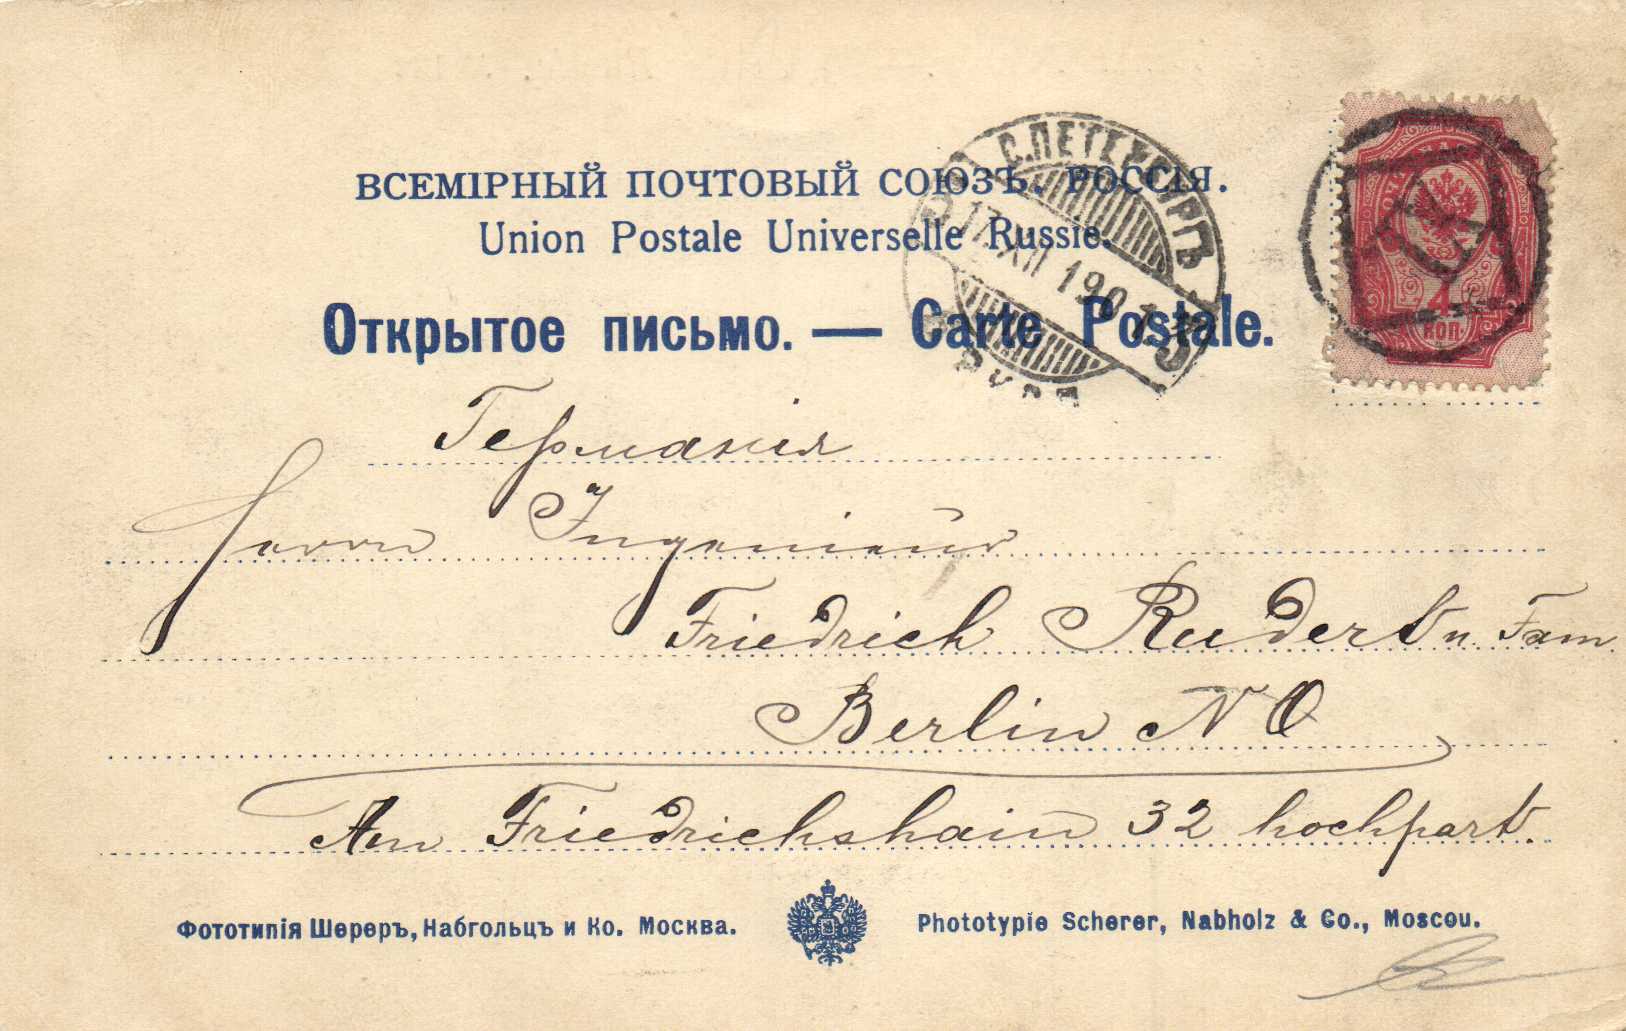 ВСЕМІРНЫЙ ПОЧТОВЫЙ СОЮЗЪ. РОССІЯ.
Union Postale Universelle Russie.
Открытое письмо. — Carte Postale.
С.ПЕТЕРБУРГЪ
17 XII 1901
4
КОП.
Германія
Herrn Ingenieur
Friedrich Rudert u. Fam.
Berlin NO
Am Friedrichshain 32 hochpart.
Фототипія Шереръ, Набгольцъ и Ко. Москва.
Phototypie Scherer, Nabholz & Co., Moscou.